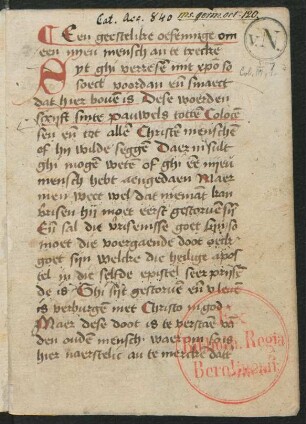 Cat. Acc. 840 ms. germ. oct. 180.
v. N.
Een geestelike oefeninge om
een nyeu mensch an te trecke
Syt ghi verresen mit xpo so
soect voordan en smaect
dat hier bouen is. Dese woerden
scrijft sinte pauwels totten Coloce
sen en tot allen Christen menschen
of hy wilde seggen Daer in sult
ghi mogen weten of ghi een nyeu
mensch hebt aengedaen Maer
men weet wel dat niemant kan
verisen hij moet eerst gestoruen sij
En sal die verisenisse goet
moet die voergaende doot oeck
goet sijn welcke die heilige apos
tel in die selfde epistel seer prise
de is Ghi sijt gestoruen en v leuen
is verburgen met Christo in god
Maer dese doot is te verstaen va
den ouden mensch. waerom
hier naerstelic an te mercke
Ex
Biblioth. Regia
Berolinensi